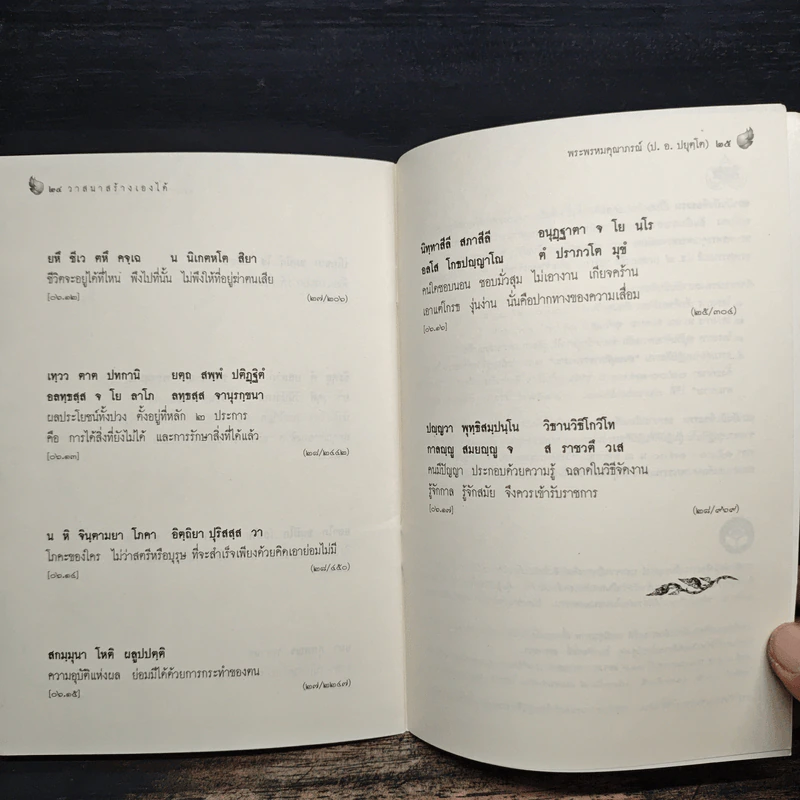 ๒๔ วาสนาสร้างเองได้
ยหึ ชีเว ตหึ คจฺเฉ น นิเกตหโต สิยา
ชีวิตจะอยู่ได้ที่ไหน พึงไปที่นั้น ไม่พึงให้ที่อยู่ฆ่าตนเสีย
[๐๖.๑๒] (๒๗/๒๐๖)
เทฺวว ตาต ปทกานิ ยตฺถ สพฺพํ ปติฏฺฐิตํ
อลทฺธสฺส จ โย ลาโภ ลทฺธสฺส จานุรกฺขนา
ผลประโยชน์ทั้งปวง ตั้งอยู่ที่หลัก ๒ ประการ
คือ การได้สิ่งที่ยังไม่ได้ และการรักษาสิ่งที่ได้แล้ว
[๐๖.๑๓] (๒๘/๒๔๔๒)
น หิ จินฺตามยา โภคา อิตฺถิยา ปุริสสฺส วา
โภคะของใคร ไม่ว่าสตรีหรือบุรุษ ที่จะสำเร็จเพียงด้วยคิดเอาย่อมไม่มี
[๐๖.๑๔] (๒๘/๔๕๐)
สกมฺมุนา โหติ ผลูปปตฺติ
ความอุบัติแห่งผล ย่อมมีได้ด้วยการกระทำของตน
[๐๖.๑๕] (๒๗/๒๒๔๗)
พระพรหมคุณาภรณ์ (ป. อ. ปยุตฺโต) ๒๕
นิทฺทาสีลี สภาสีลี อนุฏฺฐาตา จ โย นโร
อลโส โกธปญฺญาโณ ตํ ปราภวโต มุขํ
คนใดชอบนอน ชอบมั่วสุม ไม่เอางาน เกียจคร้าน
เอาแต่โกรธ งุ่นง่าน นั่นคือปากทางของความเสื่อม
[๐๖.๑๖] (๒๕/๓๐๔)
ปญฺญวา พุทฺธิสมฺปนฺโน วิธานวิธิโกวิโท
กาลญฺญู สมยญฺญู จ ส ราชวสตึ วเส
คนมีปัญญา ประกอบด้วยความรู้ ฉลาดในวิธีจัดงาน
รู้จักกาล รู้จักสมัย จึงควรเข้ารับราชการ
[๐๖.๑๗] (๒๘/๙๖๙)